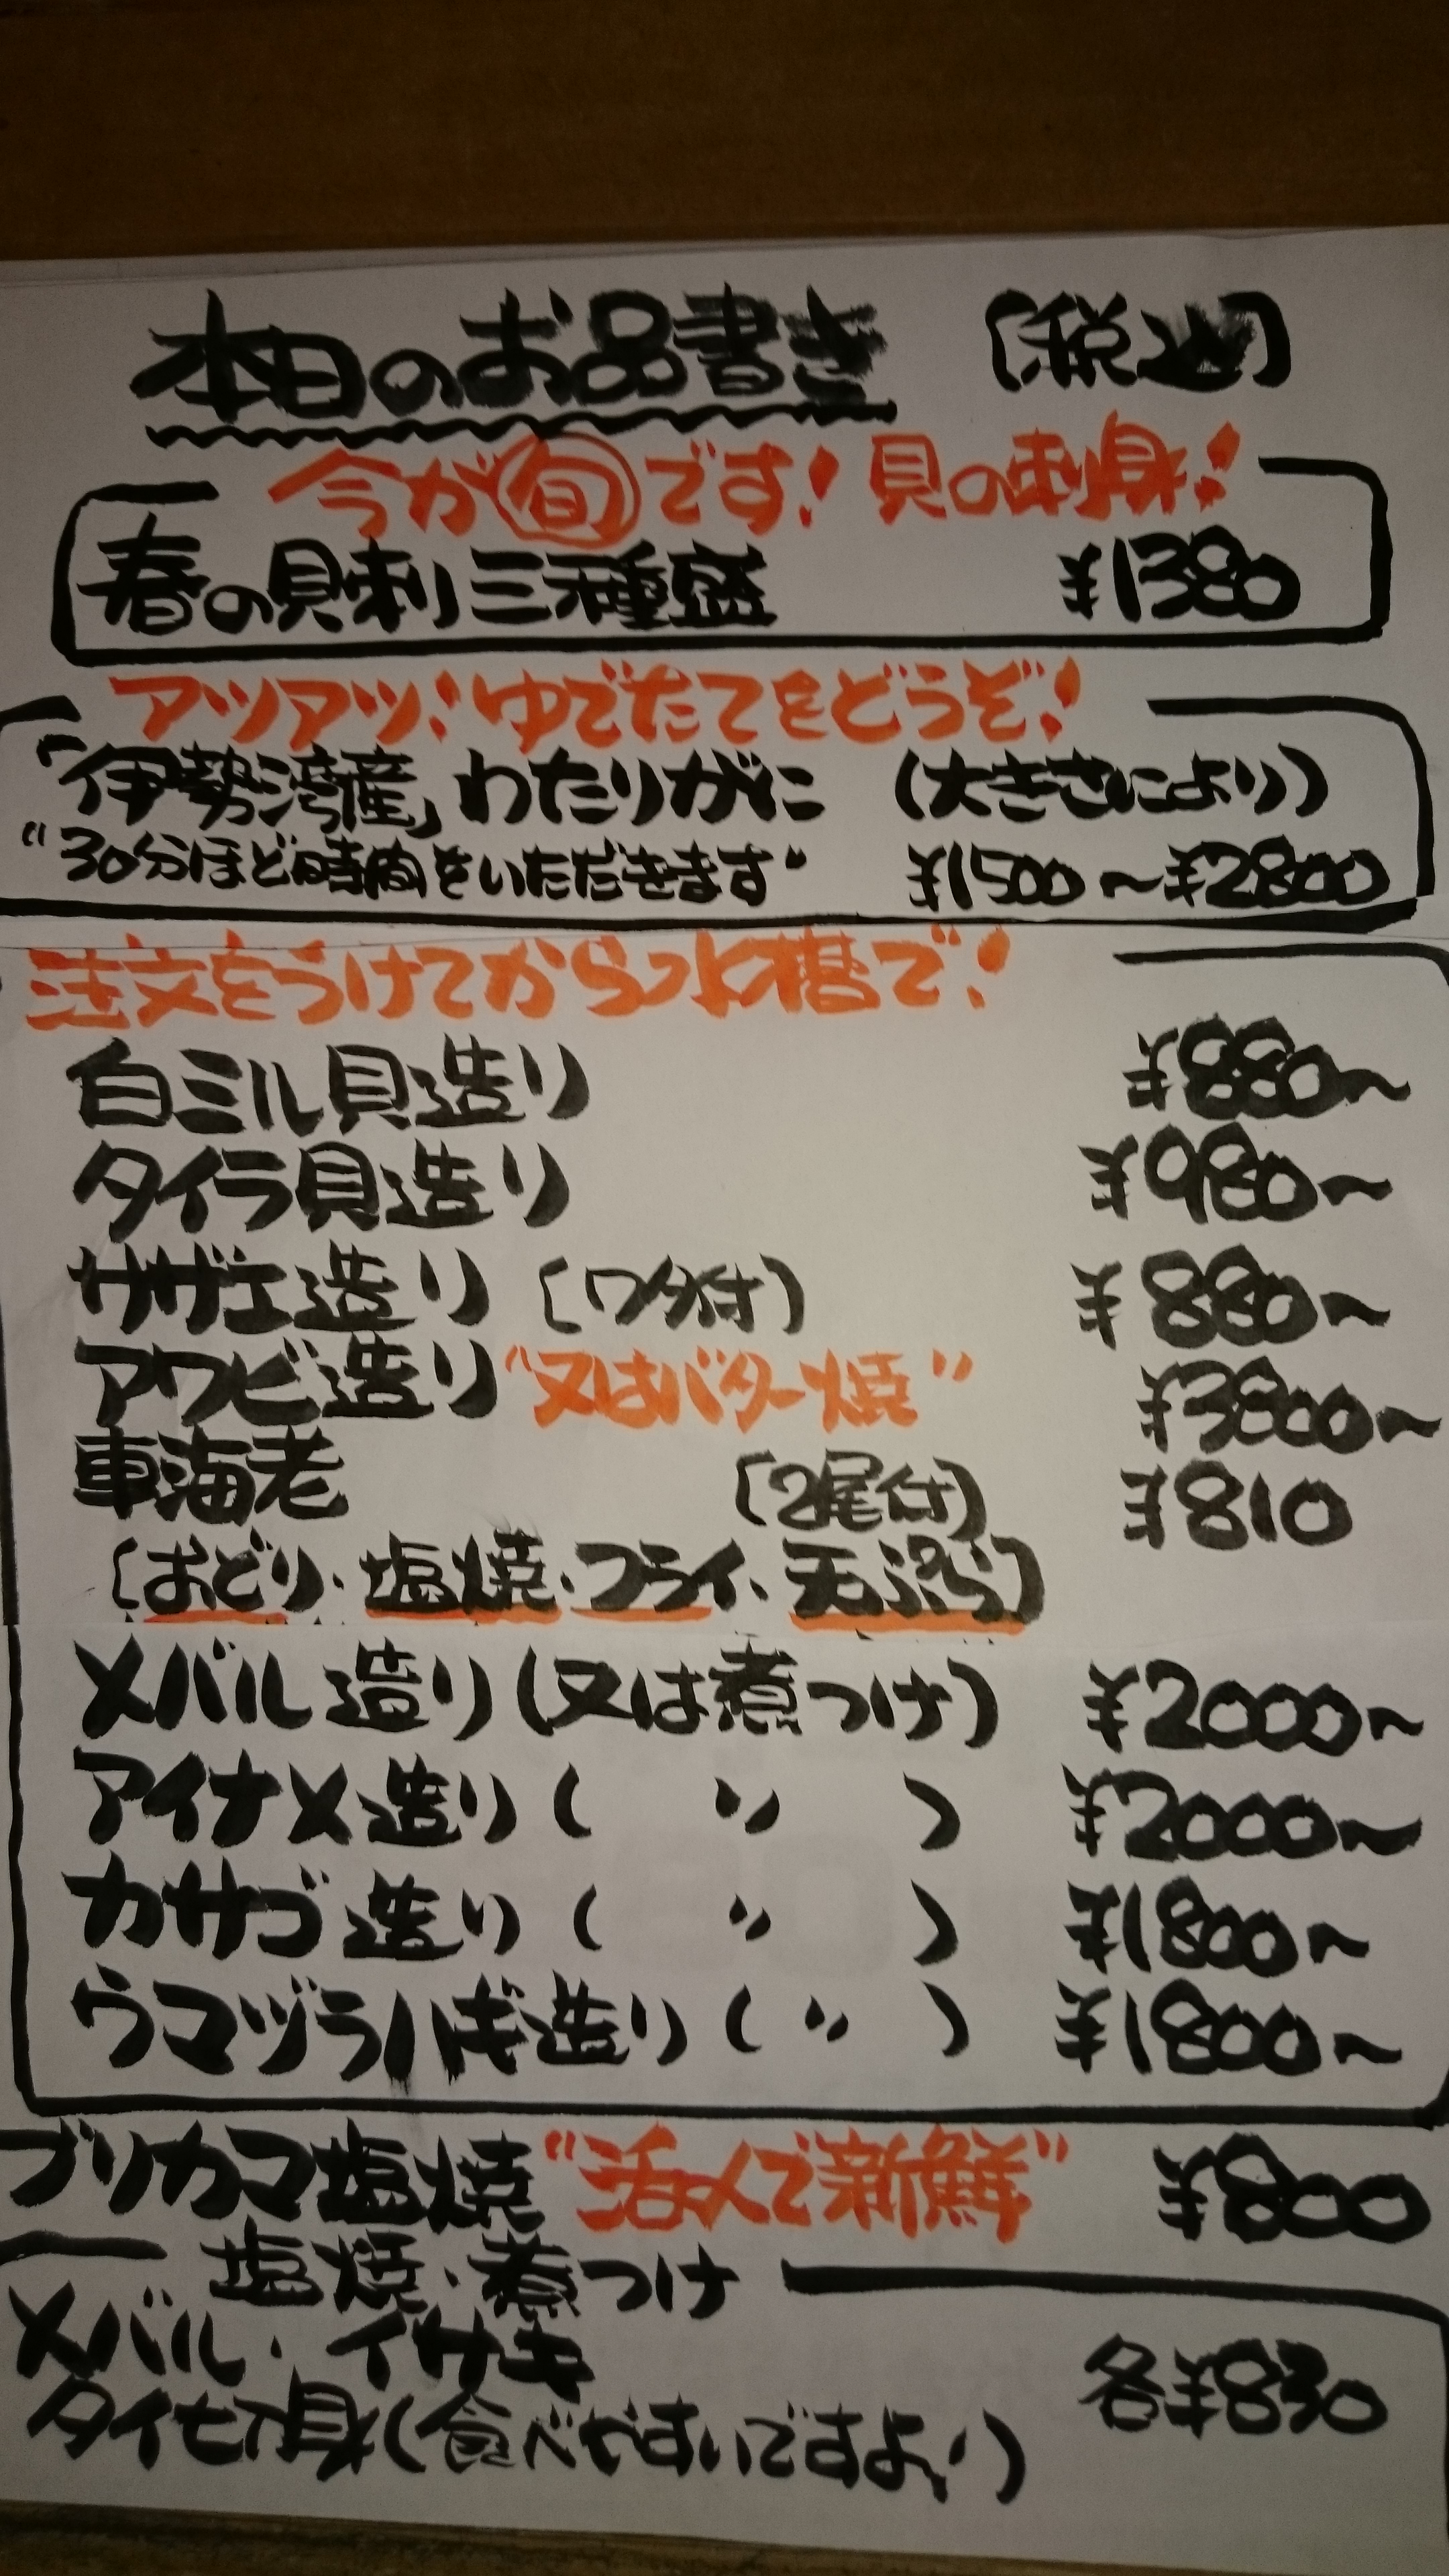 本日のお品書き [税込]
今が旬です!貝の刺身!
春の貝刺三種盛 ¥1380
アツアツ!ゆでたてをどうぞ!
「伊勢湾産」わたりがに (大きさにより)
"30分ほど時間をいただきます" ¥1500~¥2800
注文をうけてから水槽で!
白ミル貝造り ¥880~
タイラ貝造り ¥980~
サザエ造り [ワタ付] ¥880~
アワビ造り "又はバター焼" ¥3800~
車海老 [2尾付] ¥810
[おどり・塩焼・フライ・天ぷら]
メバル造り (又は煮つけ) ¥2000~
アイナメ造り ( 〃 ) ¥2000~
カサゴ造り ( 〃 ) ¥1800~
ウマヅラハギ造り ( 〃 ) ¥1800~
ブリカマ塩焼 "活〆で新鮮" ¥800
塩焼・煮つけ
メバル・イサキ
タイ切身(食べやすいですよ!) 各¥830